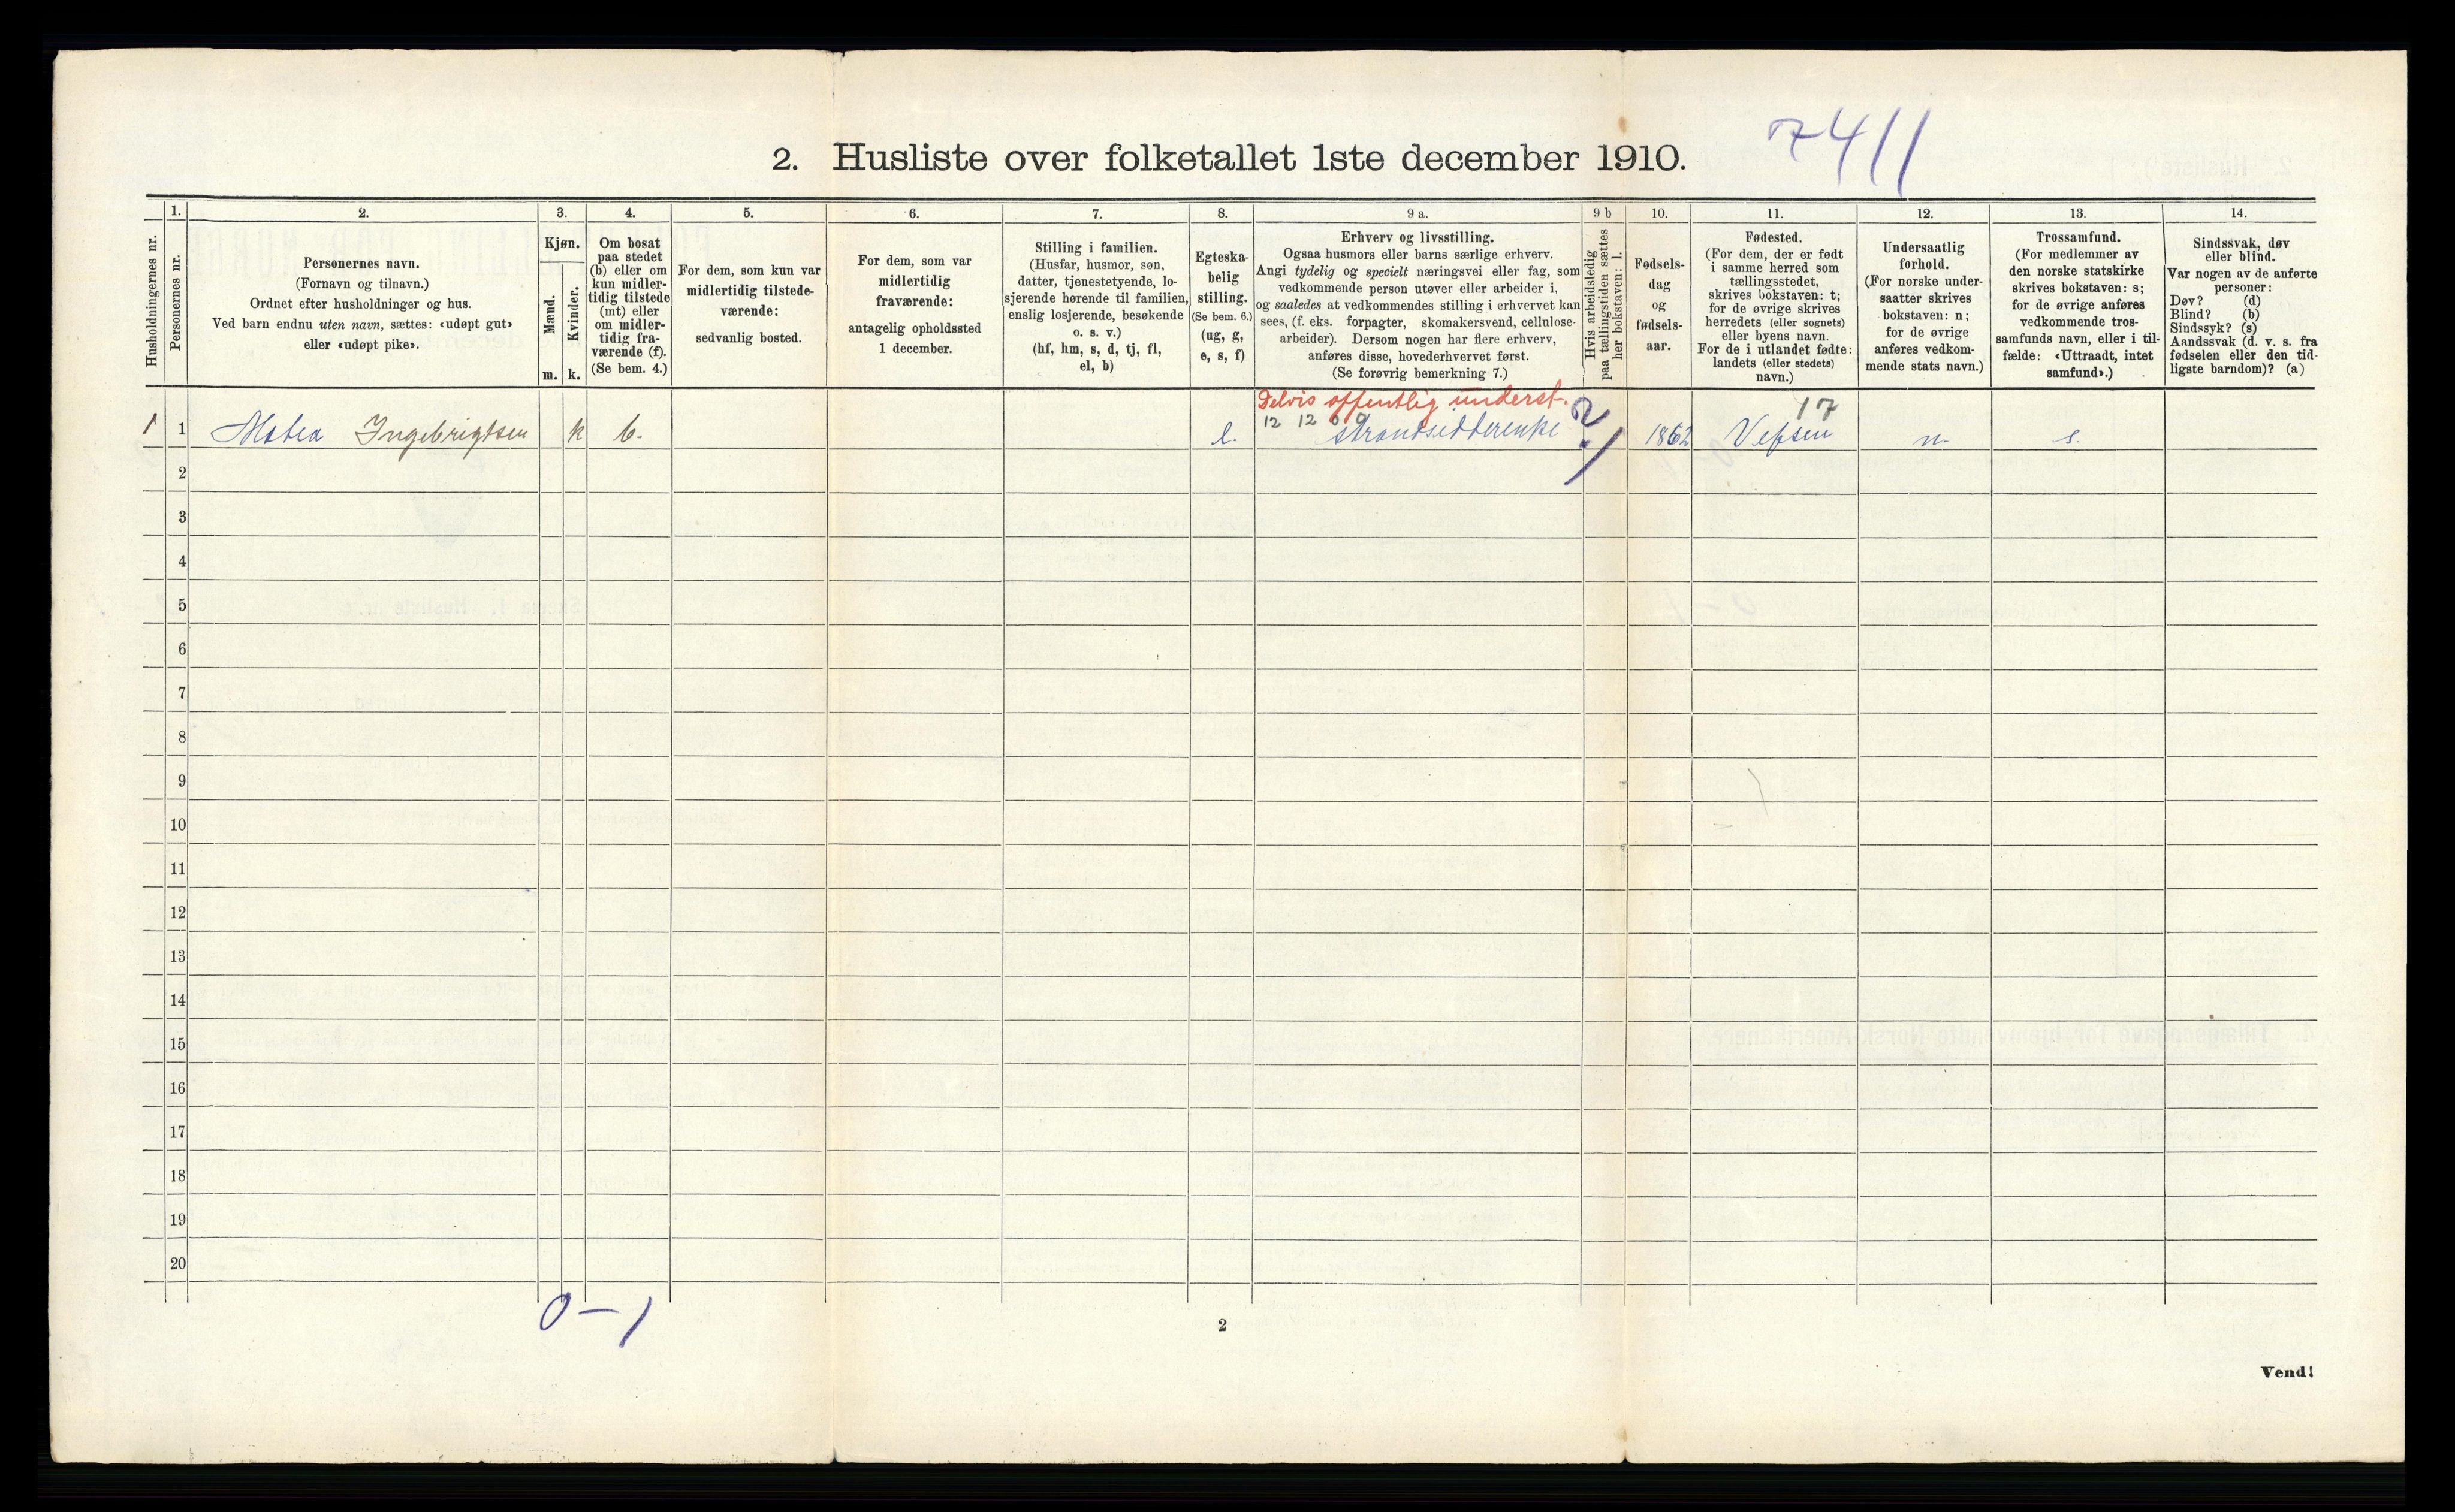 2. Husliste over folketallet 1ste december 1910.
7411
Husholdningernes nr.
1.
Personernes nr.
2.
Personernes navn.
(Fornavn og tilnavn.)
Ordnet efter husholdninger og hus.
Ved barn endnu uten navn, sættes: «udøpt gut»
eller «udøpt pike».
3.
Kjøn.
Mænd.
Kvinder.
m. k.
4.
Om bosat
paa stedet
(b) eller om
kun midler-
tidig tilstede
(mt) eller
om midler-
tidig fra-
værende (f).
(Se bem. 4.)
5.
For dem, som kun var
midlertidig tilstede-
værende:
sedvanlig bosted.
6.
For dem, som var
midlertidig
fraværende:
antagelig opholdssted
1 december.
7.
Stilling i familien.
(Husfar, husmor, søn,
datter, tjenestetyende, lo-
sjerende hørende til familien,
enslig losjerende, besøkende
o. s. v.)
(hf, hm, s, d, tj, fl,
el, b)
8.
Egteska-
belig
stilling.
(Se bem. 6.)
(ug, g,
e, s, f)
9 a.
Erhverv og livsstilling.
Ogsaa husmors eller barns særlige erhverv.
Angi tydelig og specielt næringsvei eller fag, som
vedkommende person utøver eller arbeider i,
og saaledes at vedkommendes stilling i erhvervet kan
sees, (f. eks. forpagter, skomakersvend, cellulose-
arbeider). Dersom nogen har flere erhverv,
anføres disse, hovederhvervet først.
(Se forøvrig bemerkning 7.)
9 b
Hvis arbeidsledig
paa tællingstiden sættes
her bokstaven: l.
10.
Fødsels-
dag
og
fødsels-
aar.
11.
Fødested.
(For dem, der er født
i samme herred som
tællingsstedet,
skrives bokstaven: t;
for de øvrige skrives
herredets (eller sognets)
eller byens navn.
For de i utlandet fødte:
landets (eller stedets)
navn.)
12.
Undersaatlig
forhold.
(For norske under-
saatter skrives
bokstaven: n;
for de øvrige
anføres vedkom-
mende stats navn.)
13.
Trossamfund.
(For medlemmer av
den norske statskirke
skrives bokstaven: s;
for de øvrige anføres
vedkommende tros-
samfunds navn, eller i til-
fælde: «Uttraadt, intet
samfund».)
14.
Sindssvak, døv
eller blind.
Var nogen av de anførte
personer:
Døv? (d)
Blind? (b)
Sindssyk? (s)
Aandssvak (d. v. s. fra
fødselen eller den tid-
ligste barndom)? (a)
Delvis offentlig underst.
12 12 0 0
17
1 1 Matea Ingebrigtsen k b. e. strandsidderenke 1862 Vefsen n. s.
2
3
4
5
6
7
8
9
10
11
12
13
14
15
16
17
18
19
20
0-1
2
Vend!